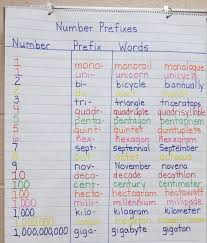 Number Prefixes
Number Prefix Words
1 mono- monorail monologue
1 uni- unicorn unicycle
2 bi- bicycle biannually
3 tri- triangle triceratops
4 quadr- quadruple quadrisyllable
5 penta- pentagon pentaprism
5 quint- quintet quintuplets
6 hex- hexagon hexagram
7 sept- septennial September
8 oct- octet octopus
9 nov- November novena
10 deca- decade decathlon
100 cent- century centimeter
100 hecto- hectogram hectowatt
1,000 milli- millennium millipede
1,000 kilo- kilogram kilometer
1,000,000,000 giga- gigabyte gigaton